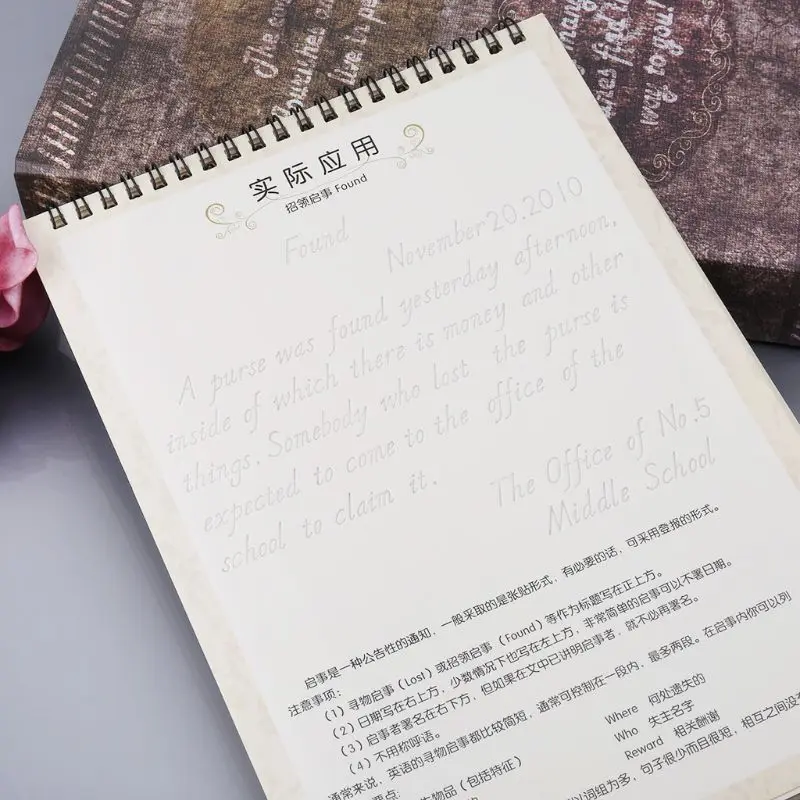 实际应用
招领启事 Found
Found November 20.2010
A purse was found yesterday afternoon,
inside of which there is money and other
things. Somebody who lost the purse is
expected to come to the office of the
school to claim it.
The Office of No.5
Middle School
启事是一种公告性的通知，一般采取的是张贴形式，有必要的话，可采用登报的形式。
注意事项：
（1）寻物启事（Lost）或招领启事（Found）等作为标题写在正上方。
（2）日期写在右上方，少数情况下也写在左上方，非常简单的启事可以不署日期。
（3）启事者署名在右下方，但如果在文中已讲明启事者，就不必再署名。
（4）不用称呼语。
通常来说，英语的寻物启事都比较简短，通常可控制在一段内，最多两段。在启事内你可以列
物品（包括特征）
Where 何处遗失的
Who 失主名字
Reward 相关酬谢
以词组为多，句子很少而且很短，相互之间没